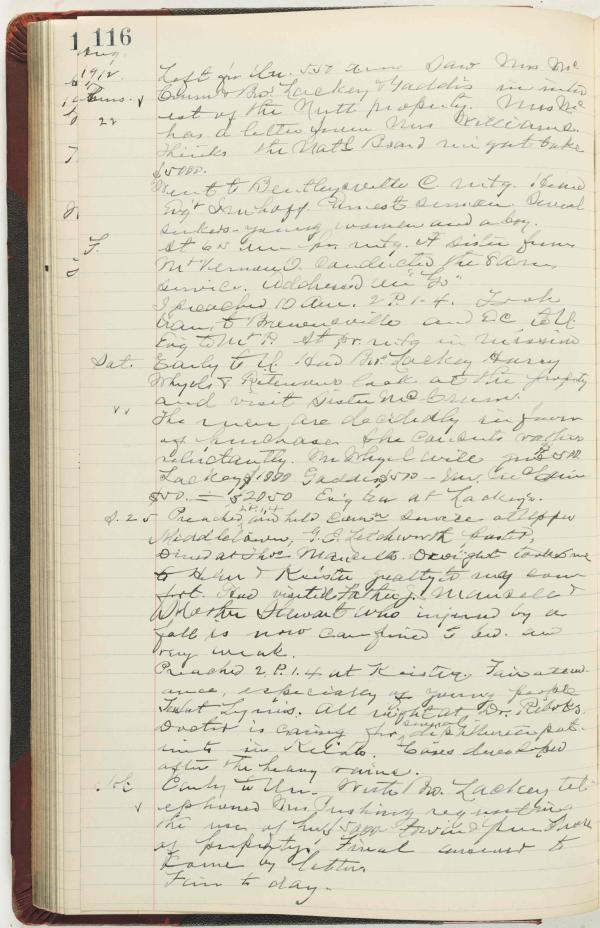 1 116
Aug.
1912
Left for Un. 5.50 train Saw Mrs. Mc
Thurs. v Crum & Bro. Lackey & Gaddis in inter
22 est of the Nutt property. Mrs Mc
has a letter from Mrs Williams.
Thinks the Nat'l Board might take
$5000.
Went to Bentleysville C. mtg. Heard
Evg't Imhoff. Earnest sermon Several
seekers - young women and a boy.
F. At 6 a.m. - pr. mtg. A sister from
Mt Vernon O. conducted the 8 a.m.
service. Addressed on "Go"
I preached 10 a.m. 2 P. 1-4. Took
tran. to Brownsville and EC to U.
Evg to Mt P. At pr. mtg in mission
Sat. Early to U. Had Bros. Lackey Harry
Whyel & look at the property
and visit Sister McCrum.
v. The men are decidedly in favor
of purchase She consents rather
reluctantly. Mr Whyel will give $500
Lackey $1000 Gaddis $500 -
$50. = $2050 Evg Un at Lackey's.
S. 25 Preached 2 P. 1.4 and held Com'n service at Upper
Middletown, G. E. Letchworth pastor,
Dined at Thos. Mansells. Dwight took me
to Helen & Keister greatly to my com
fort. Had visited Father J. Mansell &
Mother Stewart who injured by a
fall is now confined to bed. and
very weak.
Preached 2. P. 1.4 at Keister. Fair attend-
ance, especially of young people
Tea at Lynns. All night at Dr.
Doctor is caring for several diphtheria pat-
ients in Keister. Cases developed
after the heavy rains.
Early to Un. With Bro. Lackey tel
v ephoned Mrs. requesting
the use of her $5000 toward purchase
of property. Final answer to
come by letter.
Fine to day.